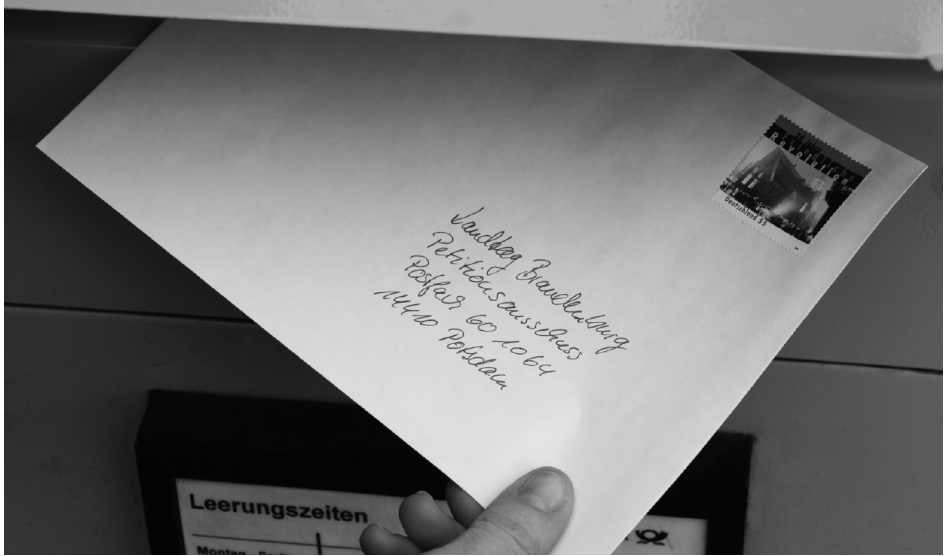 Revolution
Deutschland 55
Landtag Brandenburg
Petitionsausschuss
Postfach 60 10 64
14410 Potsdam
Leerungszeiten
Montag -